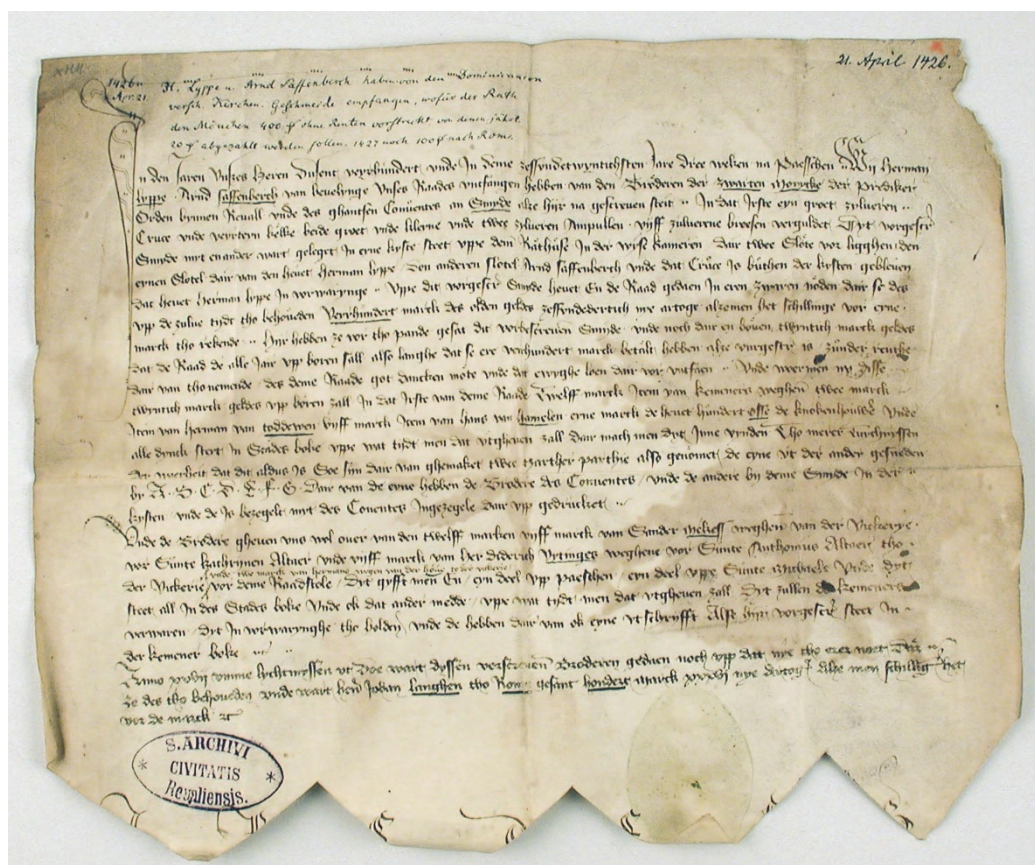 1426
Apr. 21
21. April 1426.
H. Lyppe u. Arnd Saffenberch haben von den Dominicanern
versch. Kirchen. Geschmeide empfangen, wofür der Rath
den Mönchen 400 ohne Renten vorstreckt von denen jährl.
20 abgezahlt werden sollen. 1427 noch 100 nach Rom.
In den Jaren Unses Heren Dusent veerhundert unde In deme zessundetwyntichsten Jare dree weken na Paesschen Wij Herman
lyppe Arnd saffenberch van bevelynge Unses Raades untfangen hebben van den Bröderen der zwarten Monycke der Prediker
Orden bynnen Revall unde des ghantsen Conventes an Smyde alse hijr na gescreven steit In dat Irste eyn groet zylveren
Cruce unde veertein kelke beide groet unde luttic unde twee zilveren Ampullen vijff zulverene breesen verguldet Dyt vorgescr
Smyde myt en ander wart geleget In ene kyste steet uppe dem Rathuse In der wyse kameren Dair twee Slote vor ligghen den
enen Slotel dair van den hevet Herman lyppe Den anderen slotel Arnd saffenberch unde dat Cruce Is buthen der kysten gebleven
Dat hevet Herman lyppe In vorwarynge Uppe dit vorgescr Smyde hevet En de Raad gedaen In eren zwaren nöden dair se des
upp de zulve tijdt tho behoveden Veerhundert marck des olden geldes zessundedertich nye artoge alzomen het schillinge vor ene
marck tho rekende Hijr hebben ze vor tho pande gesat dit vorbescreven Smyde unde noch dair en boven twyntich marck geldes
dat de Raad de alle Jair upp boren sall also langhe dat se ere veerhundert marck betalt hebben alze vorgescr is zunder renthe
dair van tho nemende des deme Raade got dancken mote unde dat ewyghe loen dair vor untfaen Unde weermen nu disse
twyntich marck geldes upp boren zall In dat Irste van deme Raade Twelff marck Item van kemeners weghen twee marck
Item van Herman van toddewen vijff marck Item van Hans van Hamelen eene marck de hevet hundert osse de knokenhouwer Unde
alle dinck steet in Stades boke uppe wat tijdt men dat utgheven zall Dair mach men dyt Inne vynden Tho merer tuchnyssen
der warheit dat dit aldus Is Soe sijn dair van ghemaket twee tzarther parthie also genomet de eyne ut der ander gesneden
by A B C D E F G Dair van de eene hebben de Brodere des Conventes unde de andere by deme Smyde In der
kysten unde de Is bezegelt myt des Conventes Ingezegele dair upp gedrucket
Unde de Brodere gheven uns wol over van den twelff marken vijff marck van Sander weghen van der Vickerye
vor Sunte Kathrynen Altaer unde vijff marck van her diderich Vytinges weghene vor Sunte Anthonius Altaer tho
unde twe marck van hermans wegen van der
der Vickerie vor deme Raadstole Dyt gyfft men En eyn deel upp paeschen eyn deel uppe Sunte Michaele Unde dyt
steet all In des Stades boke Unde ok dat ander mede uppe wat tijdt men dat utgheven zall Dyt zullen de kemeners
verwaren Dyt In vorwarynghe tho holden unde de hebben dair van ok eyne utschryfft Alse hijr vorgescr steet In
der kemener boke
Anno xxvij vanme lychtmyssen ut Doe wart dyssen verscreven Broderen gedaen noch upp dat nye tho erer noet Dair
ze des tho behoveden unde wart heren Johan langhen tho Rome gesant hondert marck xxxvj nye artoge Alse men schilling het
vor de marck
S. ARCHIVI
CIVITATIS
Revaliensis.